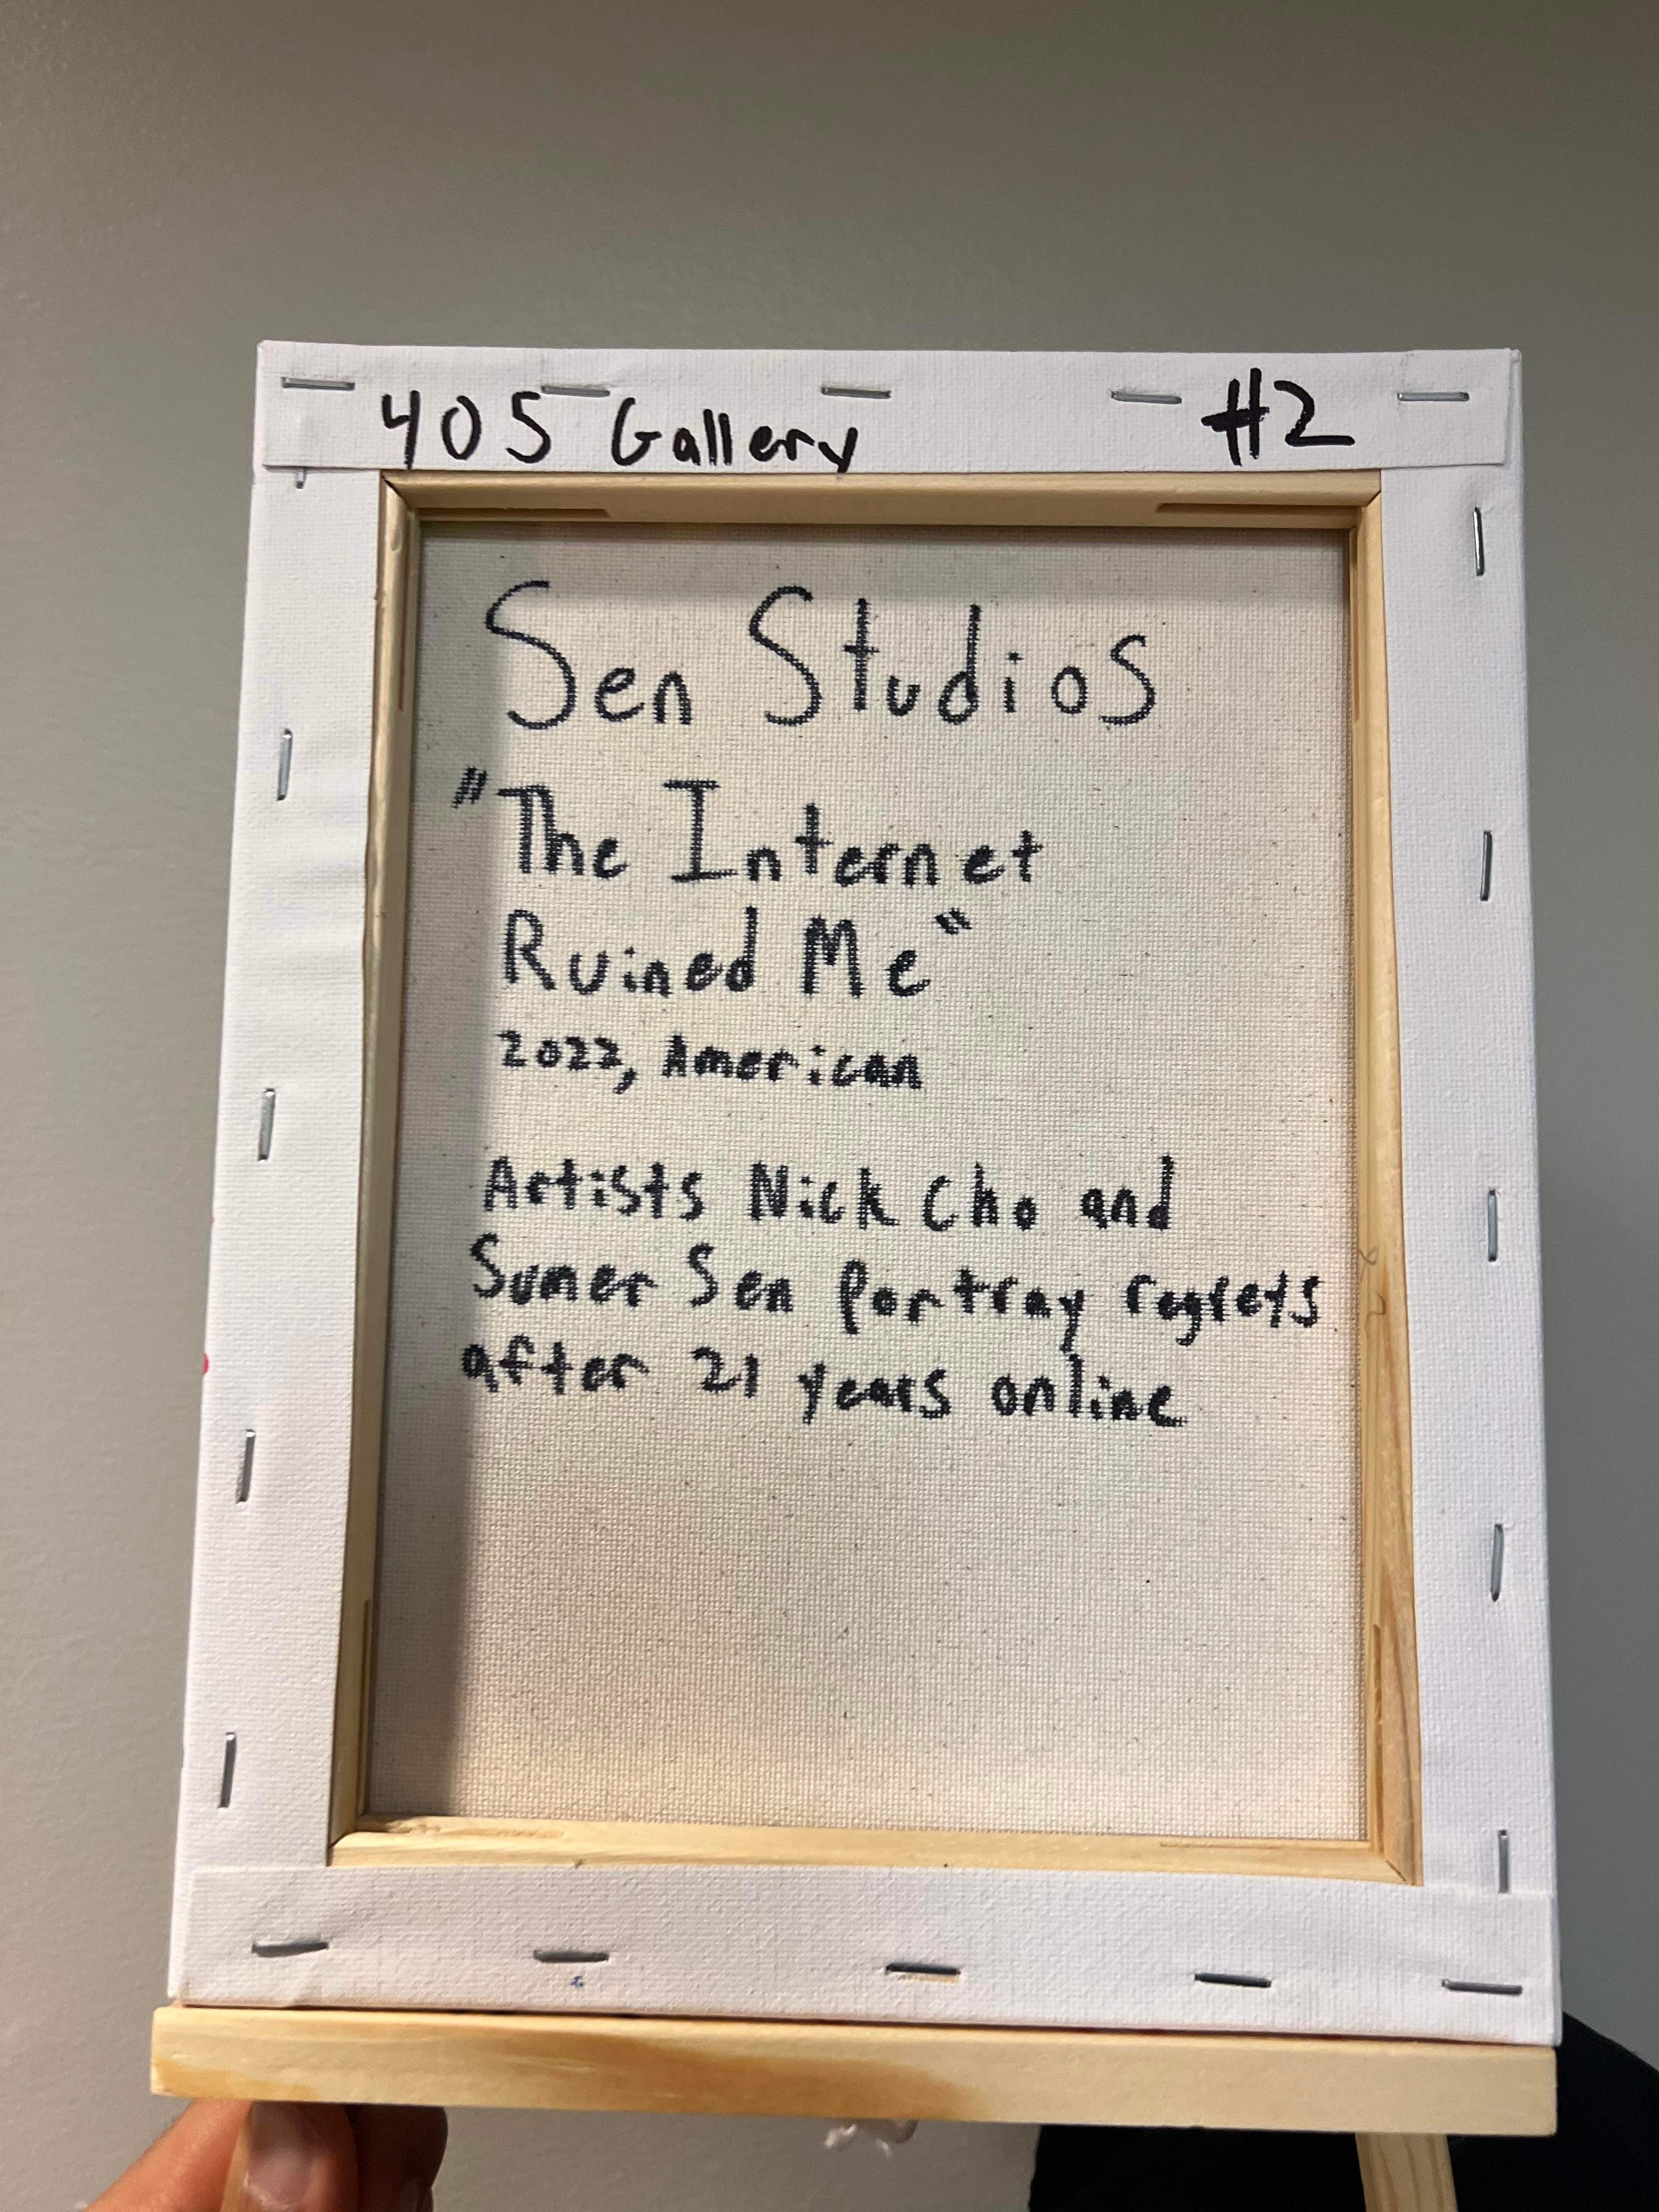 405 Gallery #2
Sen Studios
"The Internet
Ruined Me"
2022, American
Artists Nick Cho and
Sumer Sen Portray regrets
after 21 years online